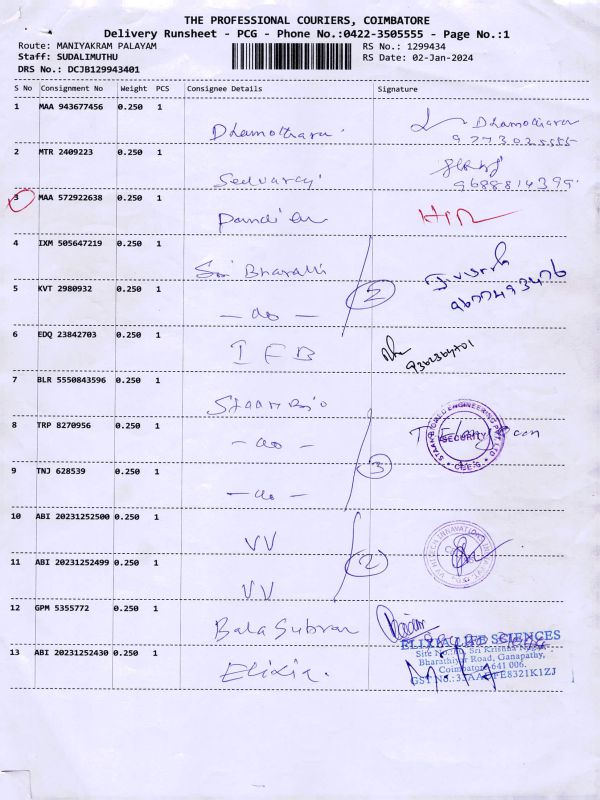 THE PROFESSIONAL COURIERS, COIMBATORE
Delivery Runsheet - PCG - Phone No.:0422-3505555 - Page No.:1
Route: MANIYAKRAM PALAYAM
RS No.: 1299434
Staff: SUDALIMUTHU
RS Date: 02-Jan-2024
DRS No.: DCJB129943401
S No Consignment No Weight PCS Consignee Details Signature
1 MAA 943677456 0.250 1
Dhamotharan Dhamotharan
2 MTR 2409223 0.250 1
Selvaraj
3 MAA 572922638 0.250 1
Pandian
4 IXM 505647219 0.250 1
Sri Bharathi
5 KVT 2980932 0.250 1
- do - 2
6 EDQ 23842703 0.250 1
IFB
7 BLR 5550843596 0.250 1
8 TRP 8270956 0.250 1
- do -
SECURITY
9 TNJ 628539 0.250 1
- do - 3
10 ABI 20231252500 0.250 1
VV
11 ABI 20231252499 0.250 1
VV 2
12 GPM 5355772 0.250 1
13 ABI 20231252430 0.250 1
Elixir.
ELIXIR LIFE SCIENCES
Bharathiyar Road, Ganapathy,
Coimbatore-641 006.